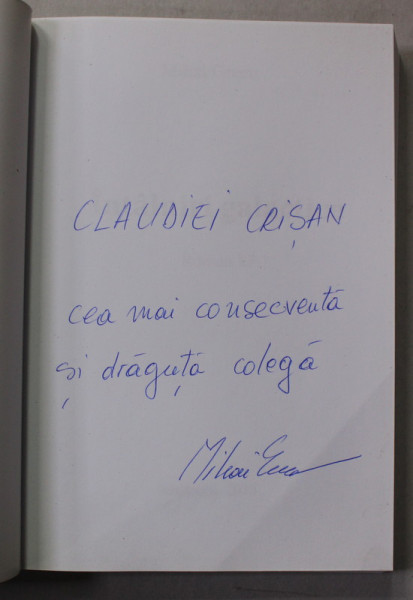 CLAUDIEI CRIȘAN
cea mai consecventă
și drăguță colegă
Mihai